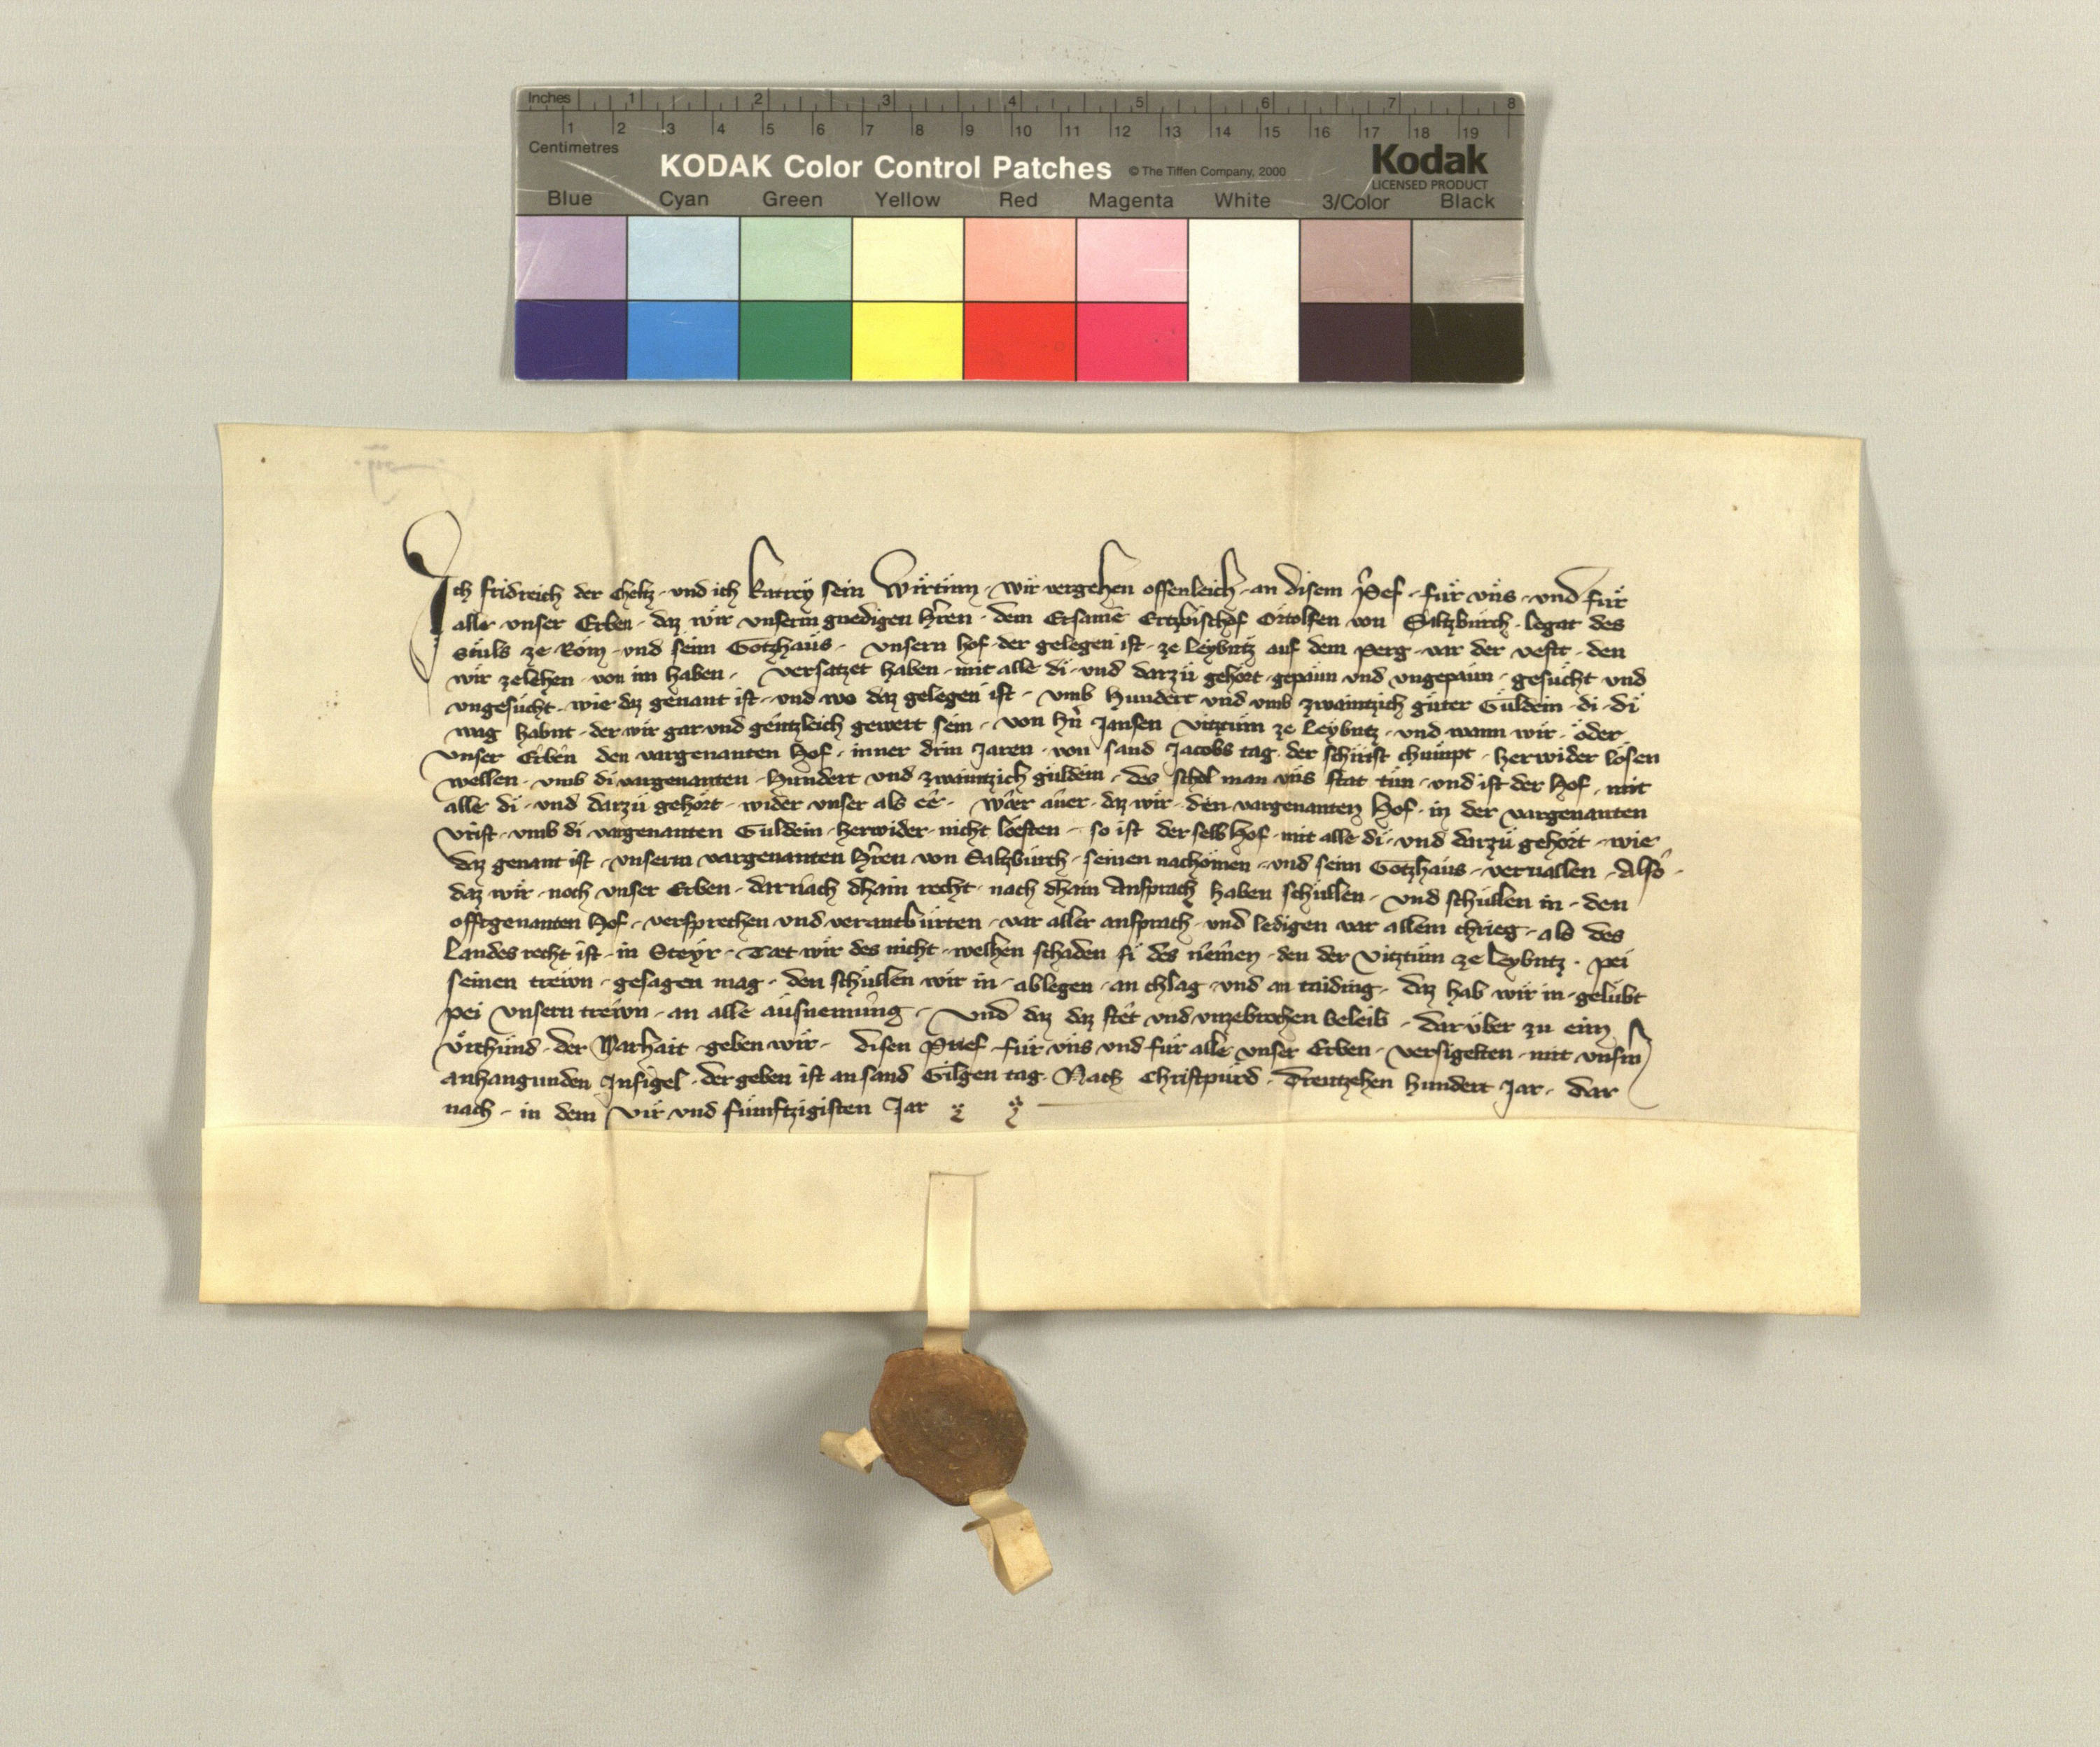 Inches 1 2 3 4 5 6 7 8
1 2 3 4 5 6 7 8 9 10 11 12 13 14 15 16 17 18 19
Centimetres
KODAK Color Control Patches © The Tiffen Company, 2000 Kodak
LICENSED PRODUCT
Blue Cyan Green Yellow Red Magenta White 3/Color Black
Ich fridreich der Cheltz · und ich Katrey sein Wirtinn · wir vergehen offenleich · an disem Prief · für vns · und für
aller vnser Erben · daz wir vnserm gnedigen Hren · dem Ersamē Ertzbischof Ortolfen von Saltzburch · legat des
Stuls ze Rom · und seim Gotzhaus · vnsern hof · der gelegen ist · ze Leybntz auf dem perg · var der vest · den
wir zelehen · von im haben · versatzet haben · mit alle di · und darzu gehort · gepaun und vngepaun · gesucht und
vngesucht · wie daz genant ist · und wo daz gelegen ist · vmb Hundert und vmb zwaintzich guter Guldein · di · di
wag habnt · der wir gar und gentzleich gewert sein · von hrn Jansen vitztum ze Leybntz · und wann wir · oder
vnser Erben den vargenanten Hof · inner drin Jaren · von sand Jacobs tag · der schirist chumpt · herwider lösen
wellen · vmb di vargenanten · Hundert und zwaintzich guldein · des schol man vns stat tun · und ist der Hof · mit
alle di · und darzu gehort · wider vnser als eê · Wær auer · daz wir · den vargenanten Hof · in der vargenanten
vrist · vmb di vargenanten Guldein · herwider · nicht loesten · so ist der selb Hof · mit alle di · und darzu gehort · wie
daz genant ist · vnserm vargenanten Hren von Salzburch · seinen nachomen · und seim Gotzhaus · veruallen · Also
daz wir · noch vnser Erben · darnach dhain recht · nach dhain Ansprach haben schullen · und schullen in · den
offtgenanten Hof · versprechen und verantburten · var aller ansprach · und ledigen var allem chrieg · als des
Landes recht ist · in Steyr · Tæt wir des nicht · welhen schaden si des nemen · den der Vitztum ze Leybntz · pei
seinen trewn · gesagen mag · den schullen wir in · ablegen · an chlag · und an taiding · daz hab wir in · gelubt
pei vnsern trewn · an alle ausnemung · Und daz daz stet und vnzebrochen beleib · darüber zu eim
vrchund · der Warhait · geben wir · disen Prief für vns und für alle vnser Erben · versigelten · mit vnsm
anhangunden Insigel · der geben ist an sand Gilgen tag · Nach Christpurd · Dreutzehen hundert Jar · dar
nach · in dem vir und fumftzigisten Jar